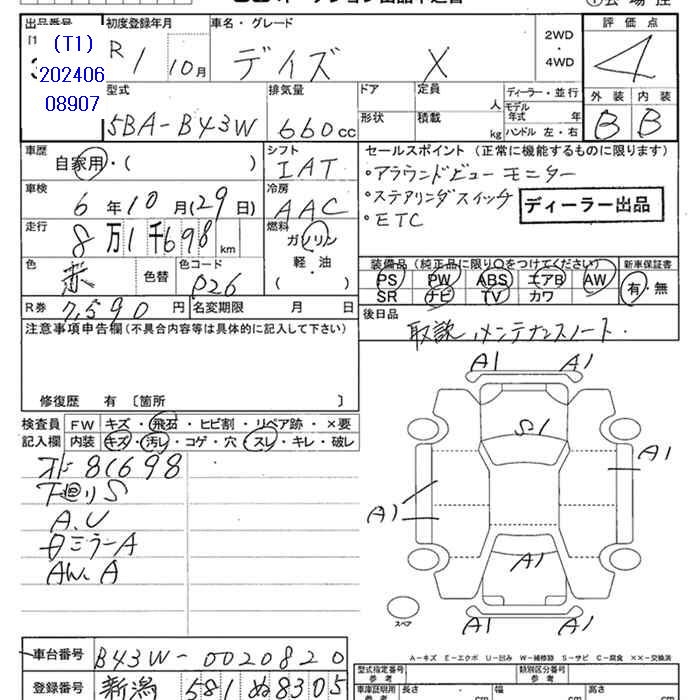 出品番号 初度登録年月 車名・グレード 評価点
(T1) R 1 10月 デイズ X 2WD・4WD 4
202406
08907
型式 排気量 ドア 定員 人 ディーラー・並行 外装 内装
5BA-B43W 660cc 形状 積載 kg モデル年式 年 ハンドル 左・右 B B
車歴 自家用・( ) シフト IAT セールスポイント (正常に機能するものに限ります)
・アラウンドビューモニター
・ステアリングスイッチ
・ETC
ディーラー出品
車検 6年10月(29日) 冷房 AAC
走行 8万1千698km 燃料 ガソリン
軽・油
( )
色 赤 色替 色コード P26
装備品 (純正品に限り○をつけてください) 新車保証書
PS PW ABS エアB AW 有・無
SR ナビ TV カワ
R券 7,590円 名変期限 月 日
後日品 取説、メンテナンスノート.
注意事項申告欄(不具合内容等は具体的に記入して下さい)
修復歴 有 〔箇所 〕
検査員 FW キズ・飛石・ヒビ割・リペア跡・×要
記入欄 内装 キズ・汚レ・コゲ・穴・スレ・キレ・破レ
81698
下回りS
A.U
ミラーA
AW.A
A1 A1
S1
A1
A1
A1
A1 A1
スペア
A-キズ E-エクボ U-凹み W-補修跡 S-サビ C-腐食 ××-交換済
車台番号 B43W-0020820
型式指定番号 参考 類別区分番号 参考
登録番号 新潟 581 ぬ 8305
車庫証明用 参考 長さ cm 幅 cm cm